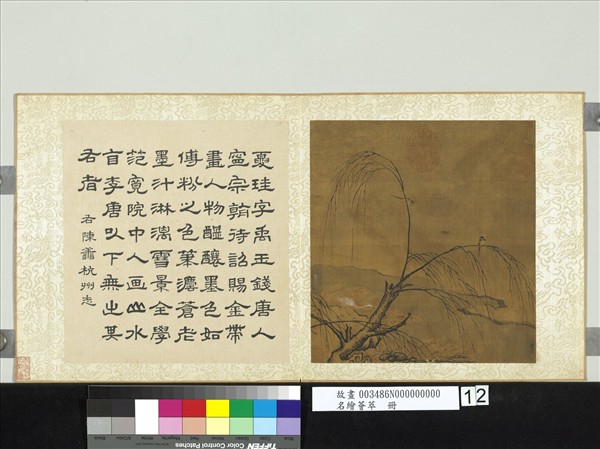 夏珪字禹玉錢唐人
寧宗朝待詔賜金帶
畫人物醞釀墨色如
傅粉之色筆灋蒼老
墨汁淋漓雪景全學
范寬院中人画山水
自李唐以下無出其
右者
右陳善杭州志
故畫 003486N000000000
名繪薈萃 冊
12
TIFFEN Color Control Patches